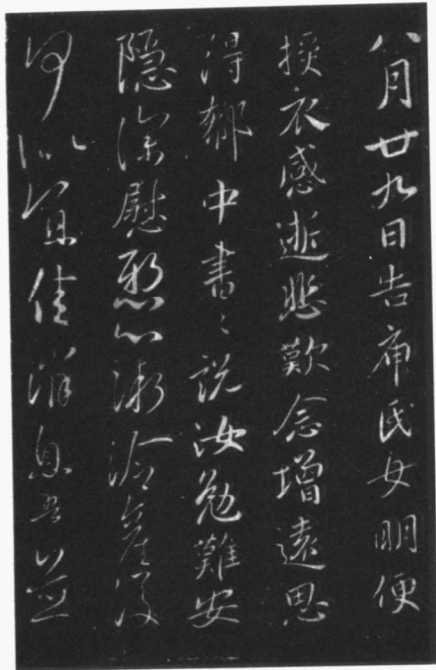 八月廿九日告庾氏女明便
授衣感逝悲歎念增遠思
得郗中書〻說汝勉難安
隱深慰懸心漸冷產後
何似宜佳消息吾並